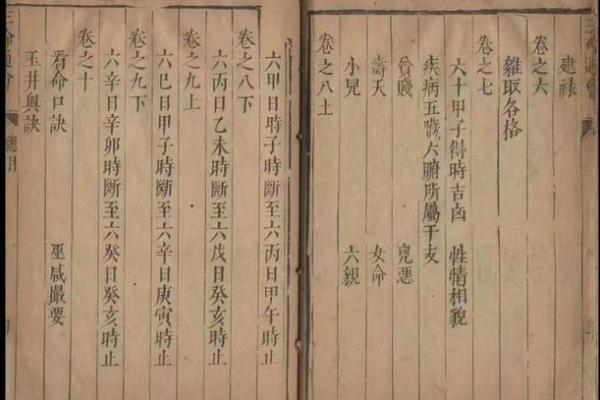 建祿
卷之六
雜取各格
卷之七
六十甲子得時吉凶 性情相貌
疾病五臟六腑所屬干支
貧賤 兇惡
壽夭 女命
小兒 六親
卷之八上
六甲日時子時斷至六丙日甲午時止
卷之八下
六丙日乙未時斷至六戊日癸亥時止
卷之九上
六巳日甲子時斷至六辛日庚寅時止
卷之九下
六辛日辛卯時斷至六癸日癸亥時止
卷之十
看命口訣 巫咸撮要
玉井奧訣
三命通會 總目